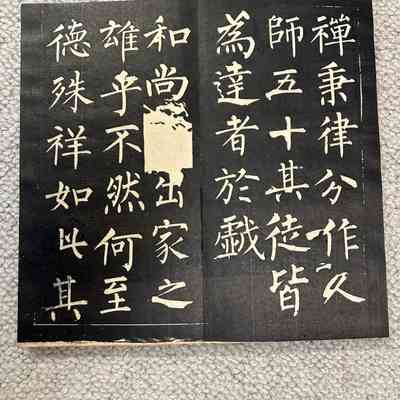 禪秉律分作人
師五十其徒皆
為達者於戲
和尚出家之
雄乎不然何至
德殊祥如此其